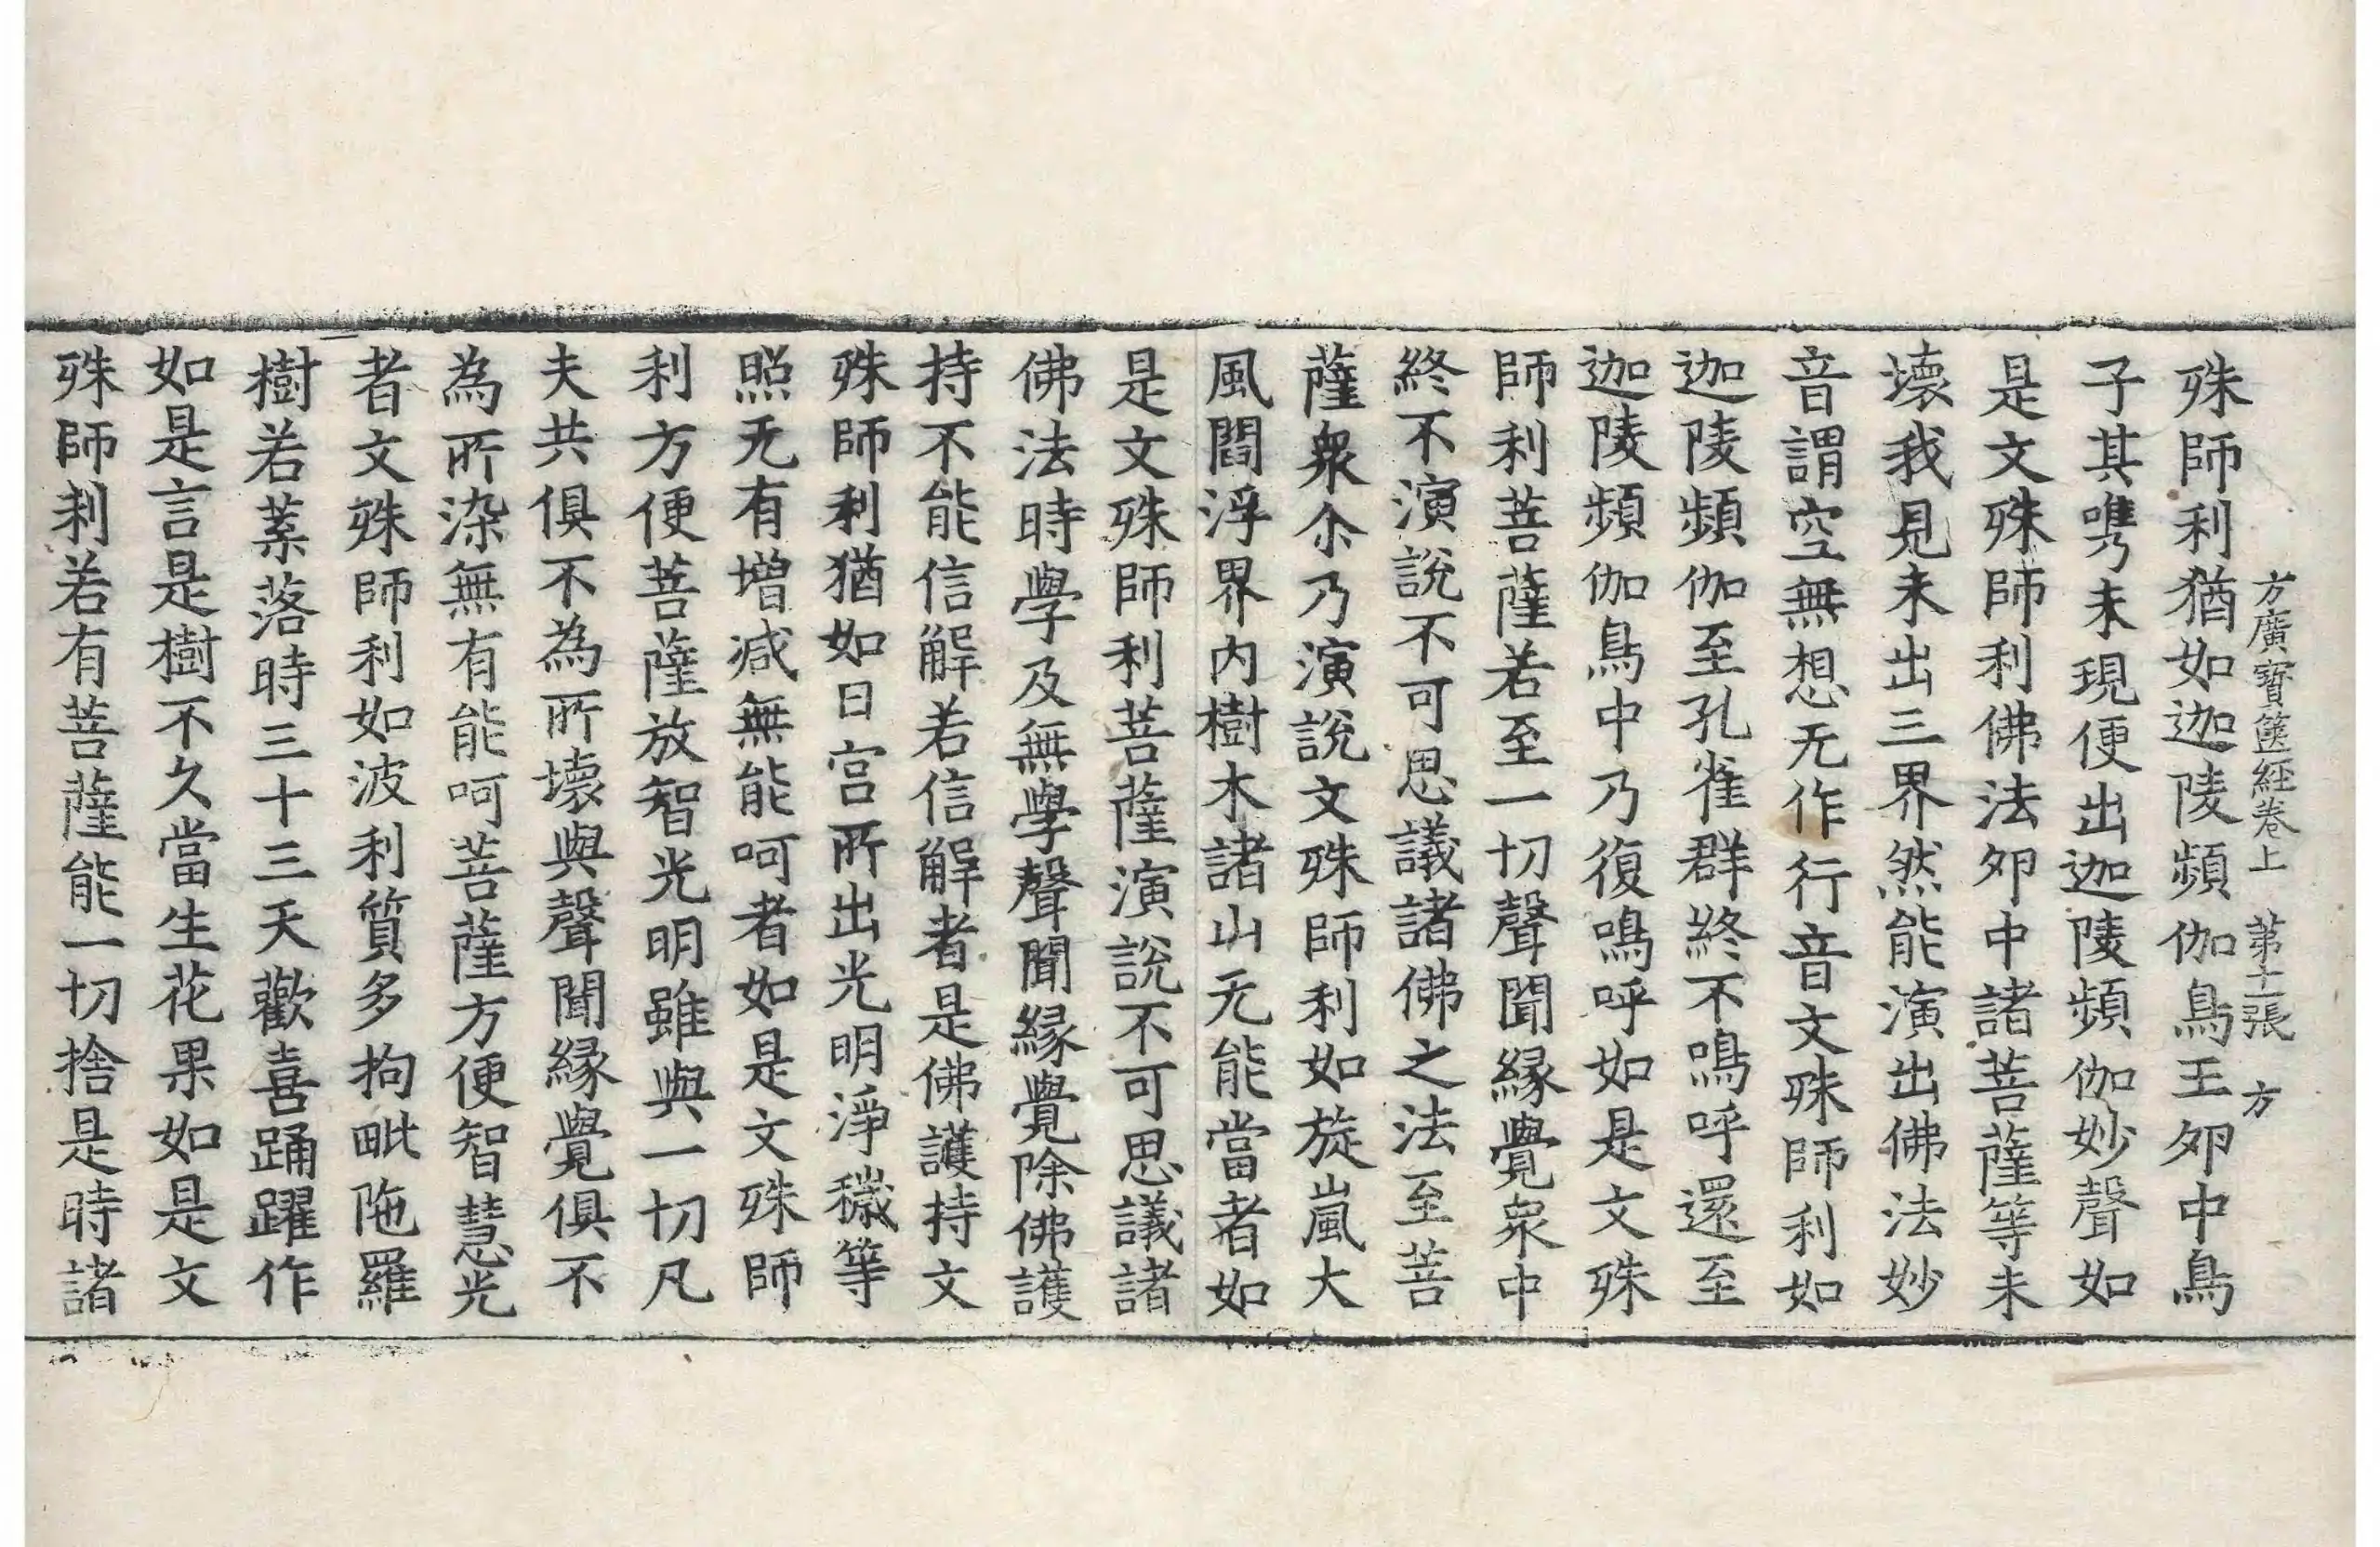 方廣寶篋經卷上 第十二張 方
殊師利猶如迦陵頻伽鳥王夘中鳥
子其㗱未現便出迦陵頻伽妙聲如
是文殊師利佛法夘中諸菩薩等未
壞我見未出三界然能演出佛法妙
音謂空無想无作行音文殊師利如
迦陵頻伽至孔雀群終不鳴呼還至
迦陵頻伽鳥中乃復鳴呼如是文殊
師利菩薩若至一切聲聞緣覺衆中
終不演說不可思議諸佛之法至菩
薩衆尒乃演說文殊師利如旋嵐大
風閻浮界内樹木諸山无能當者如
是文殊師利菩薩演說不可思議諸
佛法時學及無學聲聞緣覺除佛護
持不能信解若信解者是佛護持文
殊師利猶如日宫所出光明淨穢等
照无有增减無能呵者如是文殊師
利方便菩薩放智光明雖與一切凡
夫共俱不為所壞與聲聞緣覺俱不
為所染無有能呵菩薩方便智慧光
者文殊師利如波利質多拘毗陁羅
樹若葉落時三十三天歡喜踊躍作
如是言是樹不久當生花果如是文
殊師利若有菩薩能一切捨是時諸